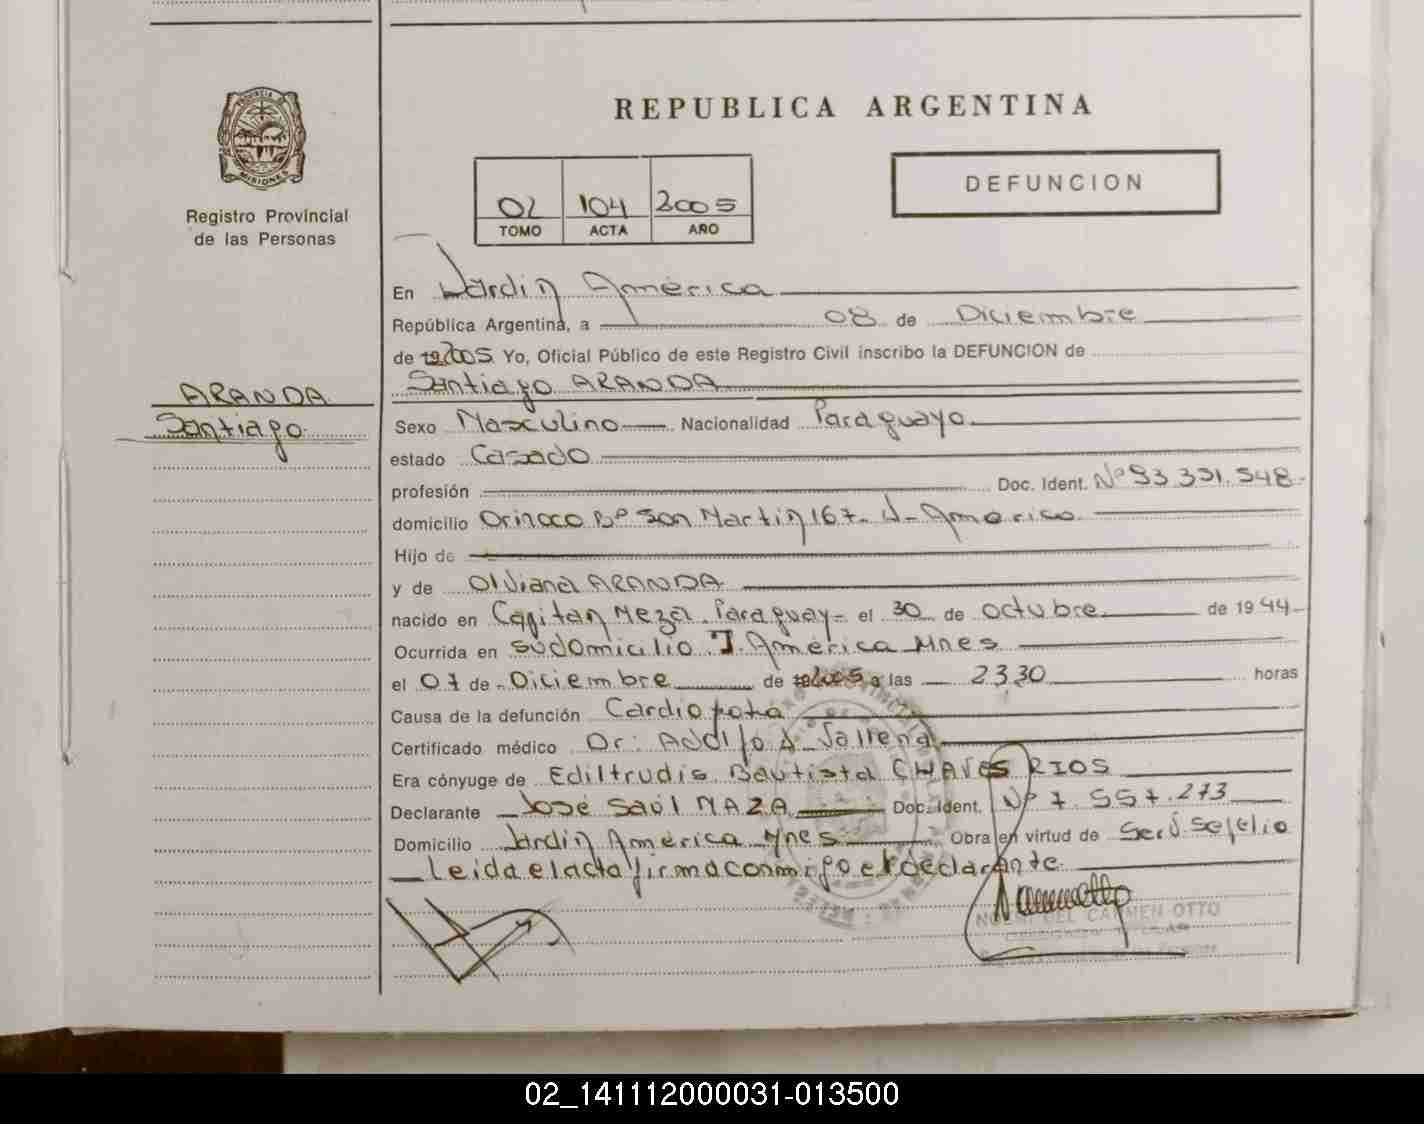 REPUBLICA ARGENTINA
DEFUNCION
02 104 2005
TOMO ACTA AÑO
PROVINCIA DE
MISIONES
Registro Provincial
de las Personas
En Jardin América
República Argentina, a 08 de Diciembre
de 2005 Yo, Oficial Público de este Registro Civil inscribo la DEFUNCION de
Santiago ARANDA
ARANDA
Santiago
Sexo Masculino Nacionalidad Paraguayo
estado Casado
profesión Doc. Ident. Nº 93 331.548
domicilio Orinoco Bº San Martin 167 - J- America
Hijo de
y de Olviana ARANDA
nacido en Capitan Meza Paraguay - el 30 de octubre de 1944
Ocurrida en su domicilio J. América Mnes
el 07 de Diciembre de 2005 a las 23,30 horas
Causa de la defunción
Certificado médico Dr: Adolfo
Era cónyuge de Ediltrudis Bautista CHAVES RIOS
Declarante José Saúl MAZA Doc. Ident. Nº 7.557.273
Domicilio Jardin América Mnes Obra en virtud de Serv. Sepelio
Leida el acta firma conmigo el declarante
DEL CARMEN OTTO
02_141112000031-013500